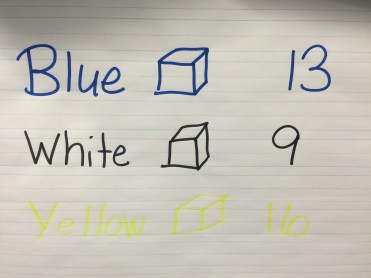 Blue 13
White 9
Yellow 16